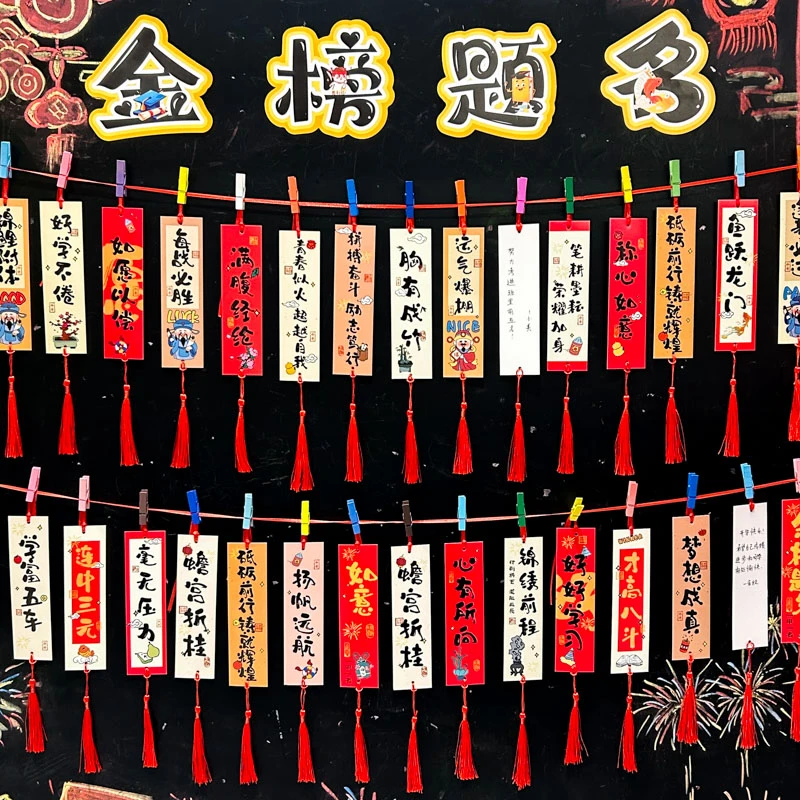 金榜题名
锦鲤附体
好学不倦
如愿以偿
每战必胜
LUCK
满腹经纶
青春似火 超越自我
拼搏奋斗 励志笃行
胸有成竹
运气爆棚
NICE
笔耕墨耘 荣耀加身
称心如意
砥砺前行 铸就辉煌
鱼跃龙门
学富五车
连中三元
毫无压力
蟾宫折桂
砥砺前行 铸就辉煌
扬帆远航
如意
蟾宫折桂
心有所向
锦绣前程
好好学习
才高八斗
梦想成真